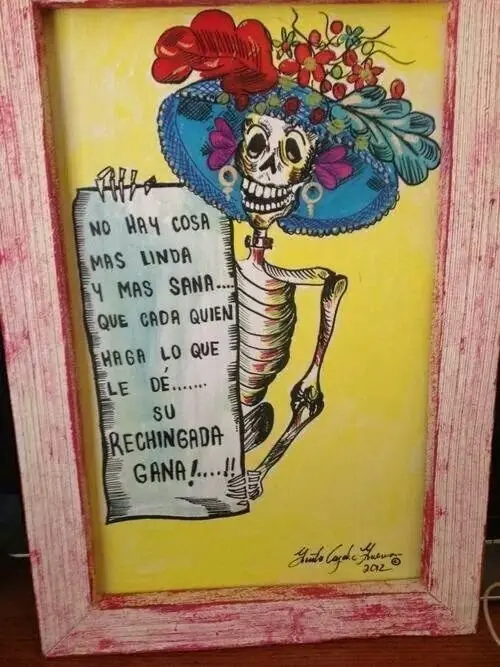 NO HAY COSA
MAS LINDA
Y MAS SANA....
QUE CADA QUIEN
HAGA LO QUE
LE DÉ.......
SU
RECHINGADA
GANA!....!!
2012 ©